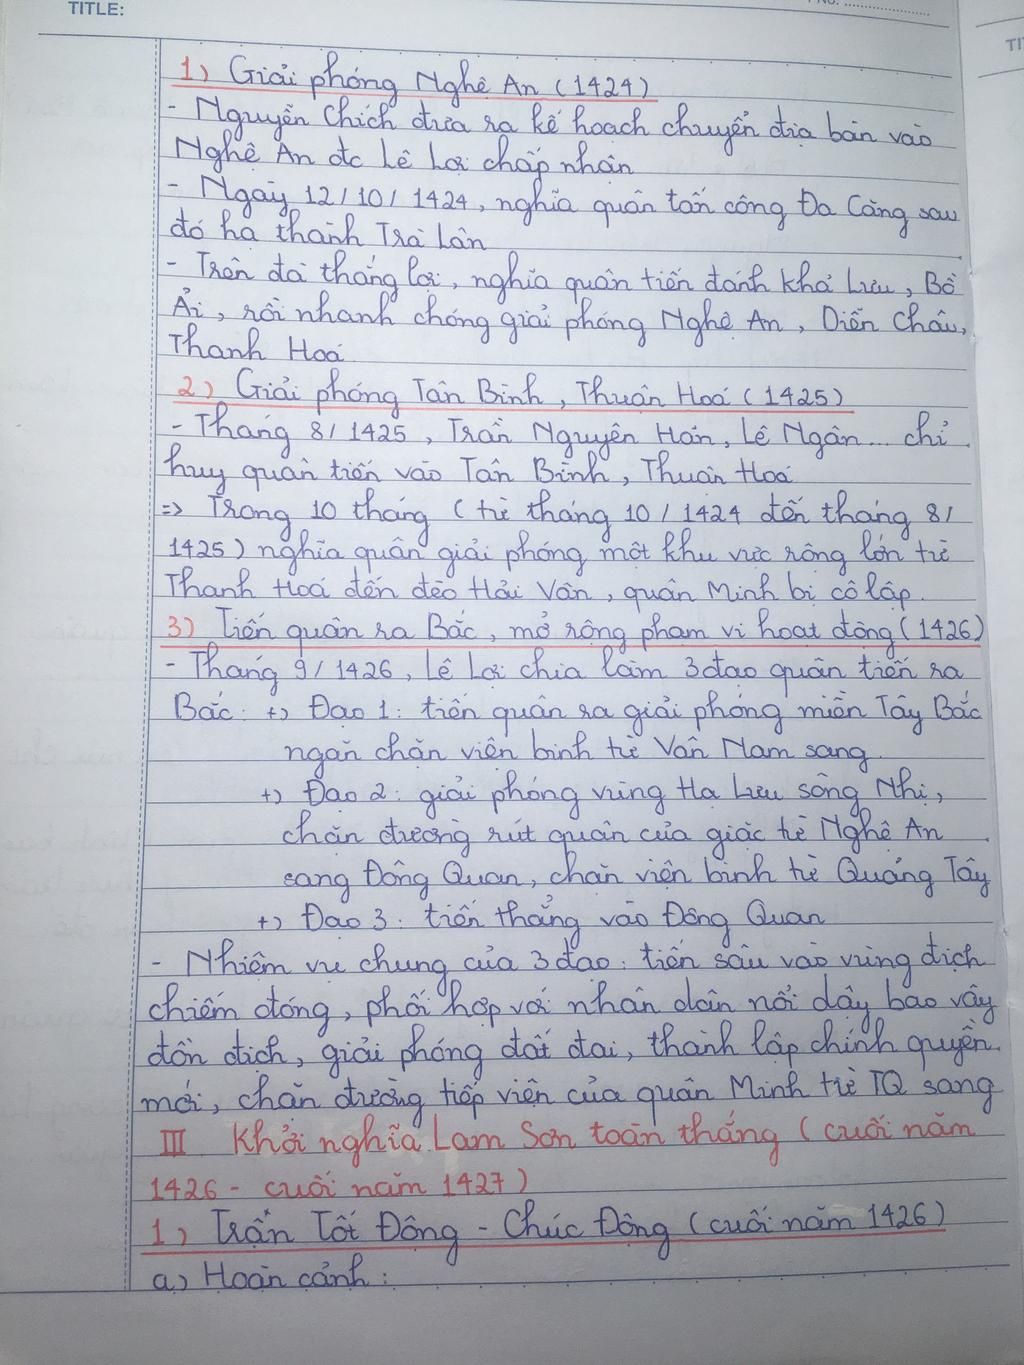 TITLE:
1) Giải phóng Nghệ An (1424)
- Nguyễn Chích đưa ra kế hoạch chuyển địa bàn vào
Nghệ An đc Lê Lợi chấp nhận
- Ngày 12/10/1424, nghĩa quân tấn công Đa Căng sau
đó hạ thành Trà Lân
- Trên đà thắng lợi, nghĩa quân tiến đánh Khả Lưu, Bồ
Ải, rồi nhanh chóng giải phóng Nghệ An, Diễn Châu,
Thanh Hoá
2) Giải phóng Tân Bình, Thuận Hoá (1425)
- Tháng 8/1425, Trần Nguyên Hãn, Lê Ngân... chỉ
huy quân tiến vào Tân Bình, Thuận Hoá
=> Trong 10 tháng (từ tháng 10/1424 đến tháng 8/
1425) nghĩa quân giải phóng một khu vực rộng lớn từ
Thanh Hoá đến đèo Hải Vân, quân Minh bị cô lập.
3) Tiến quân ra Bắc, mở rộng phạm vi hoạt động (1426)
- Tháng 9/1426, Lê Lợi chia làm 3 đạo quân tiến ra
Bắc: +) Đạo 1: tiến quân ra giải phóng miền Tây Bắc
ngăn chặn viện binh từ Vân Nam sang
+) Đạo 2: giải phóng vùng Hạ Lưu sông Nhị,
chặn đường rút quân của giặc từ Nghệ An
sang Đông Quan, chặn viện binh từ Quảng Tây
+) Đạo 3: tiến thẳng vào Đông Quan
- Nhiệm vụ chung của 3 đạo: tiến sâu vào vùng địch
chiếm đóng, phối hợp với nhân dân nổi dậy bao vây
đồn địch, giải phóng đất đai, thành lập chính quyền
mới, chặn đường tiếp viện của quân Minh từ TQ sang
III. Khởi nghĩa Lam Sơn toàn thắng (cuối năm
1426 - cuối năm 1427)
1) Trận Tốt Động - Chúc Động (cuối năm 1426)
a) Hoàn cảnh: